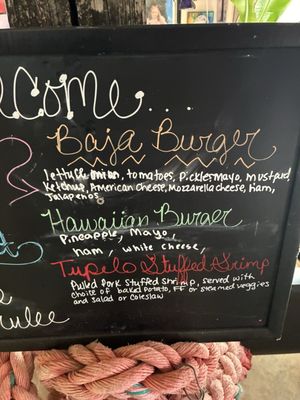 elcome....
Baja Burger
lettuce onion, tomatoes, picklesmayo, mustard
Ketchup, American Cheese, Mozzarella cheese, Ham,
Jalapenos
Hawaiian Burger
Pineapple, Mayo,
ham, white cheese,
Tupelo Stuffed Srimp
Pulled Pork Stuffed Shrimp, served with
choice of baked potato, FF or steamed veggies
and salad or coleslaw
rulee